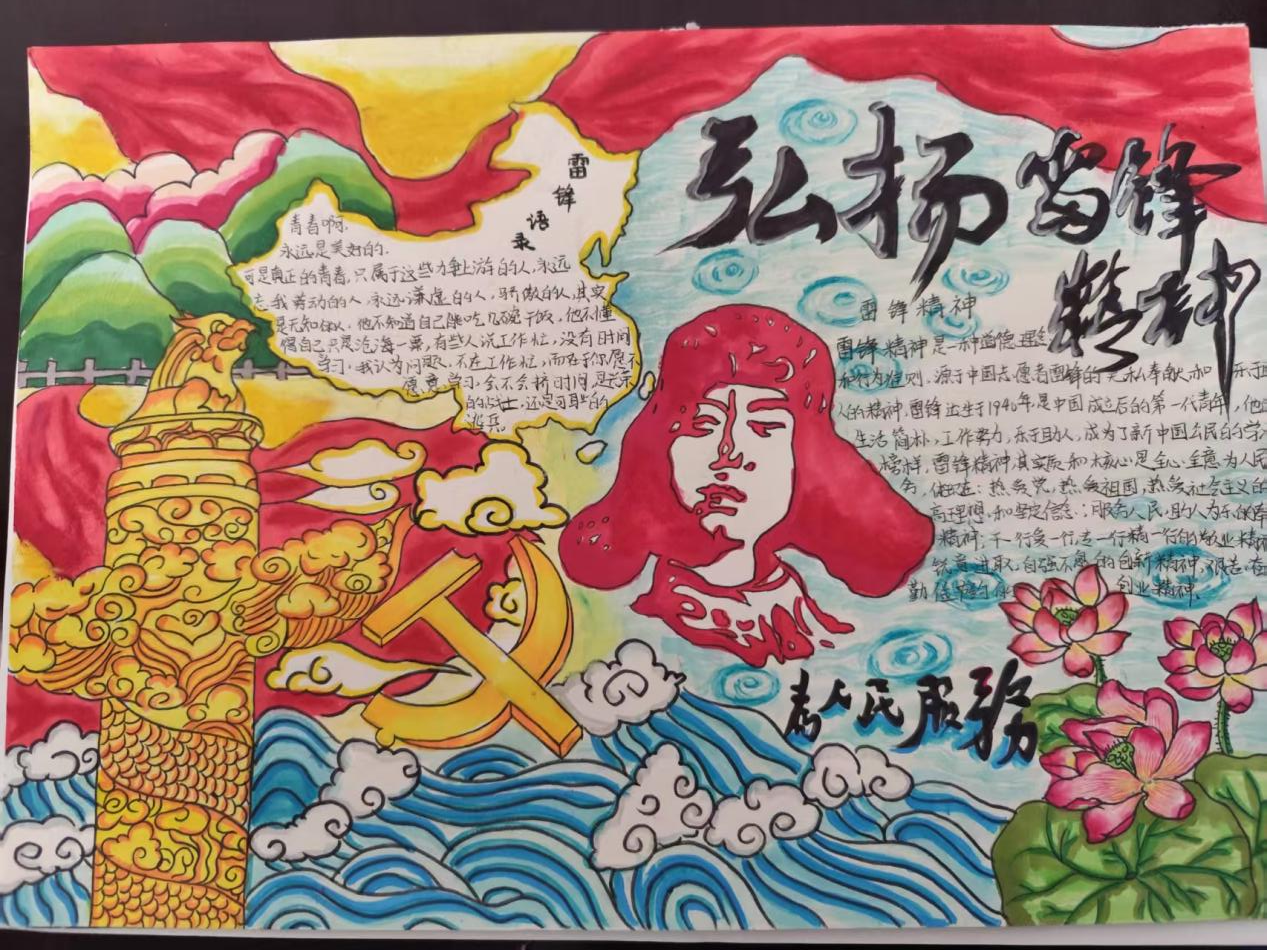 弘扬雷锋
精神
雷锋语录
青春啊,
永远是美好的,
可是真正的青春,只属于这些力争上游的人,永远
忘我劳动的人,永远谦虚的人,骄傲的人,其实
是无知的人,他不知道自己能吃几碗干饭,他不懂
得自己只是沧海一粟,有些人说工作忙,没有时间
学习,我认为问题,不在工作忙,而在于你愿不
愿意学习,会不会挤时间,
的战士,还是可耻的
逃兵.
雷锋精神
雷锋精神是一种道德理念
和行为准则,源于中国志愿者雷锋的无私奉献和乐于助
人的精神,雷锋出生于1940年,是中国成立后的第一代青年,他
生活简朴,工作努力,乐于助人,成为了新中国公民的学习
榜样,雷锋精神,其实质和核心是全心全意为人民
务,体现在:热爱党,热爱祖国,热爱社会主义的
高理想和坚定信念:服务人民,助人为乐的奉
精神;干一行爱一行,专一行精一行的敬业精神
锐意进取,自强不息的创新精神,艰苦奋
勤俭节约 创业精神.
为人民服务